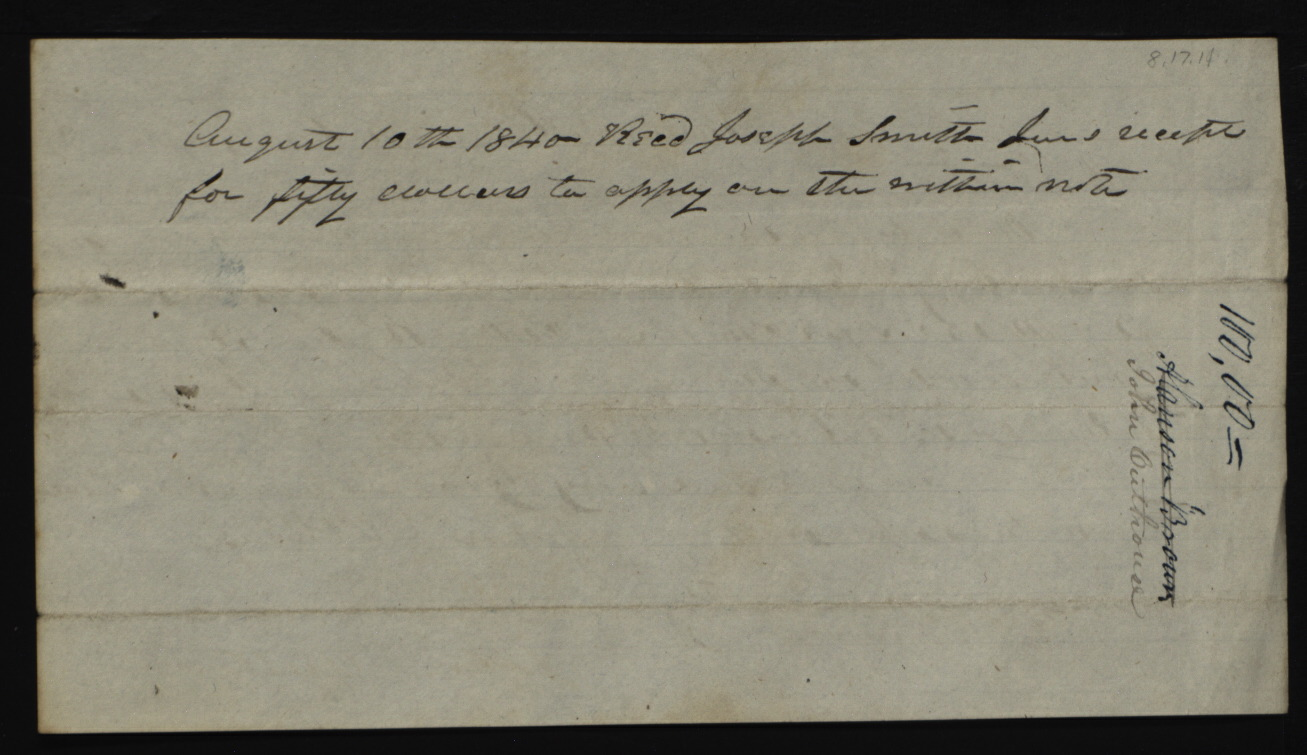 8.17.11.
August 10th 1840 Recd Joseph Smith Juns recept
for fifty dollars to apply on the within note
100,00=
Alanson Brown
John Outhouse